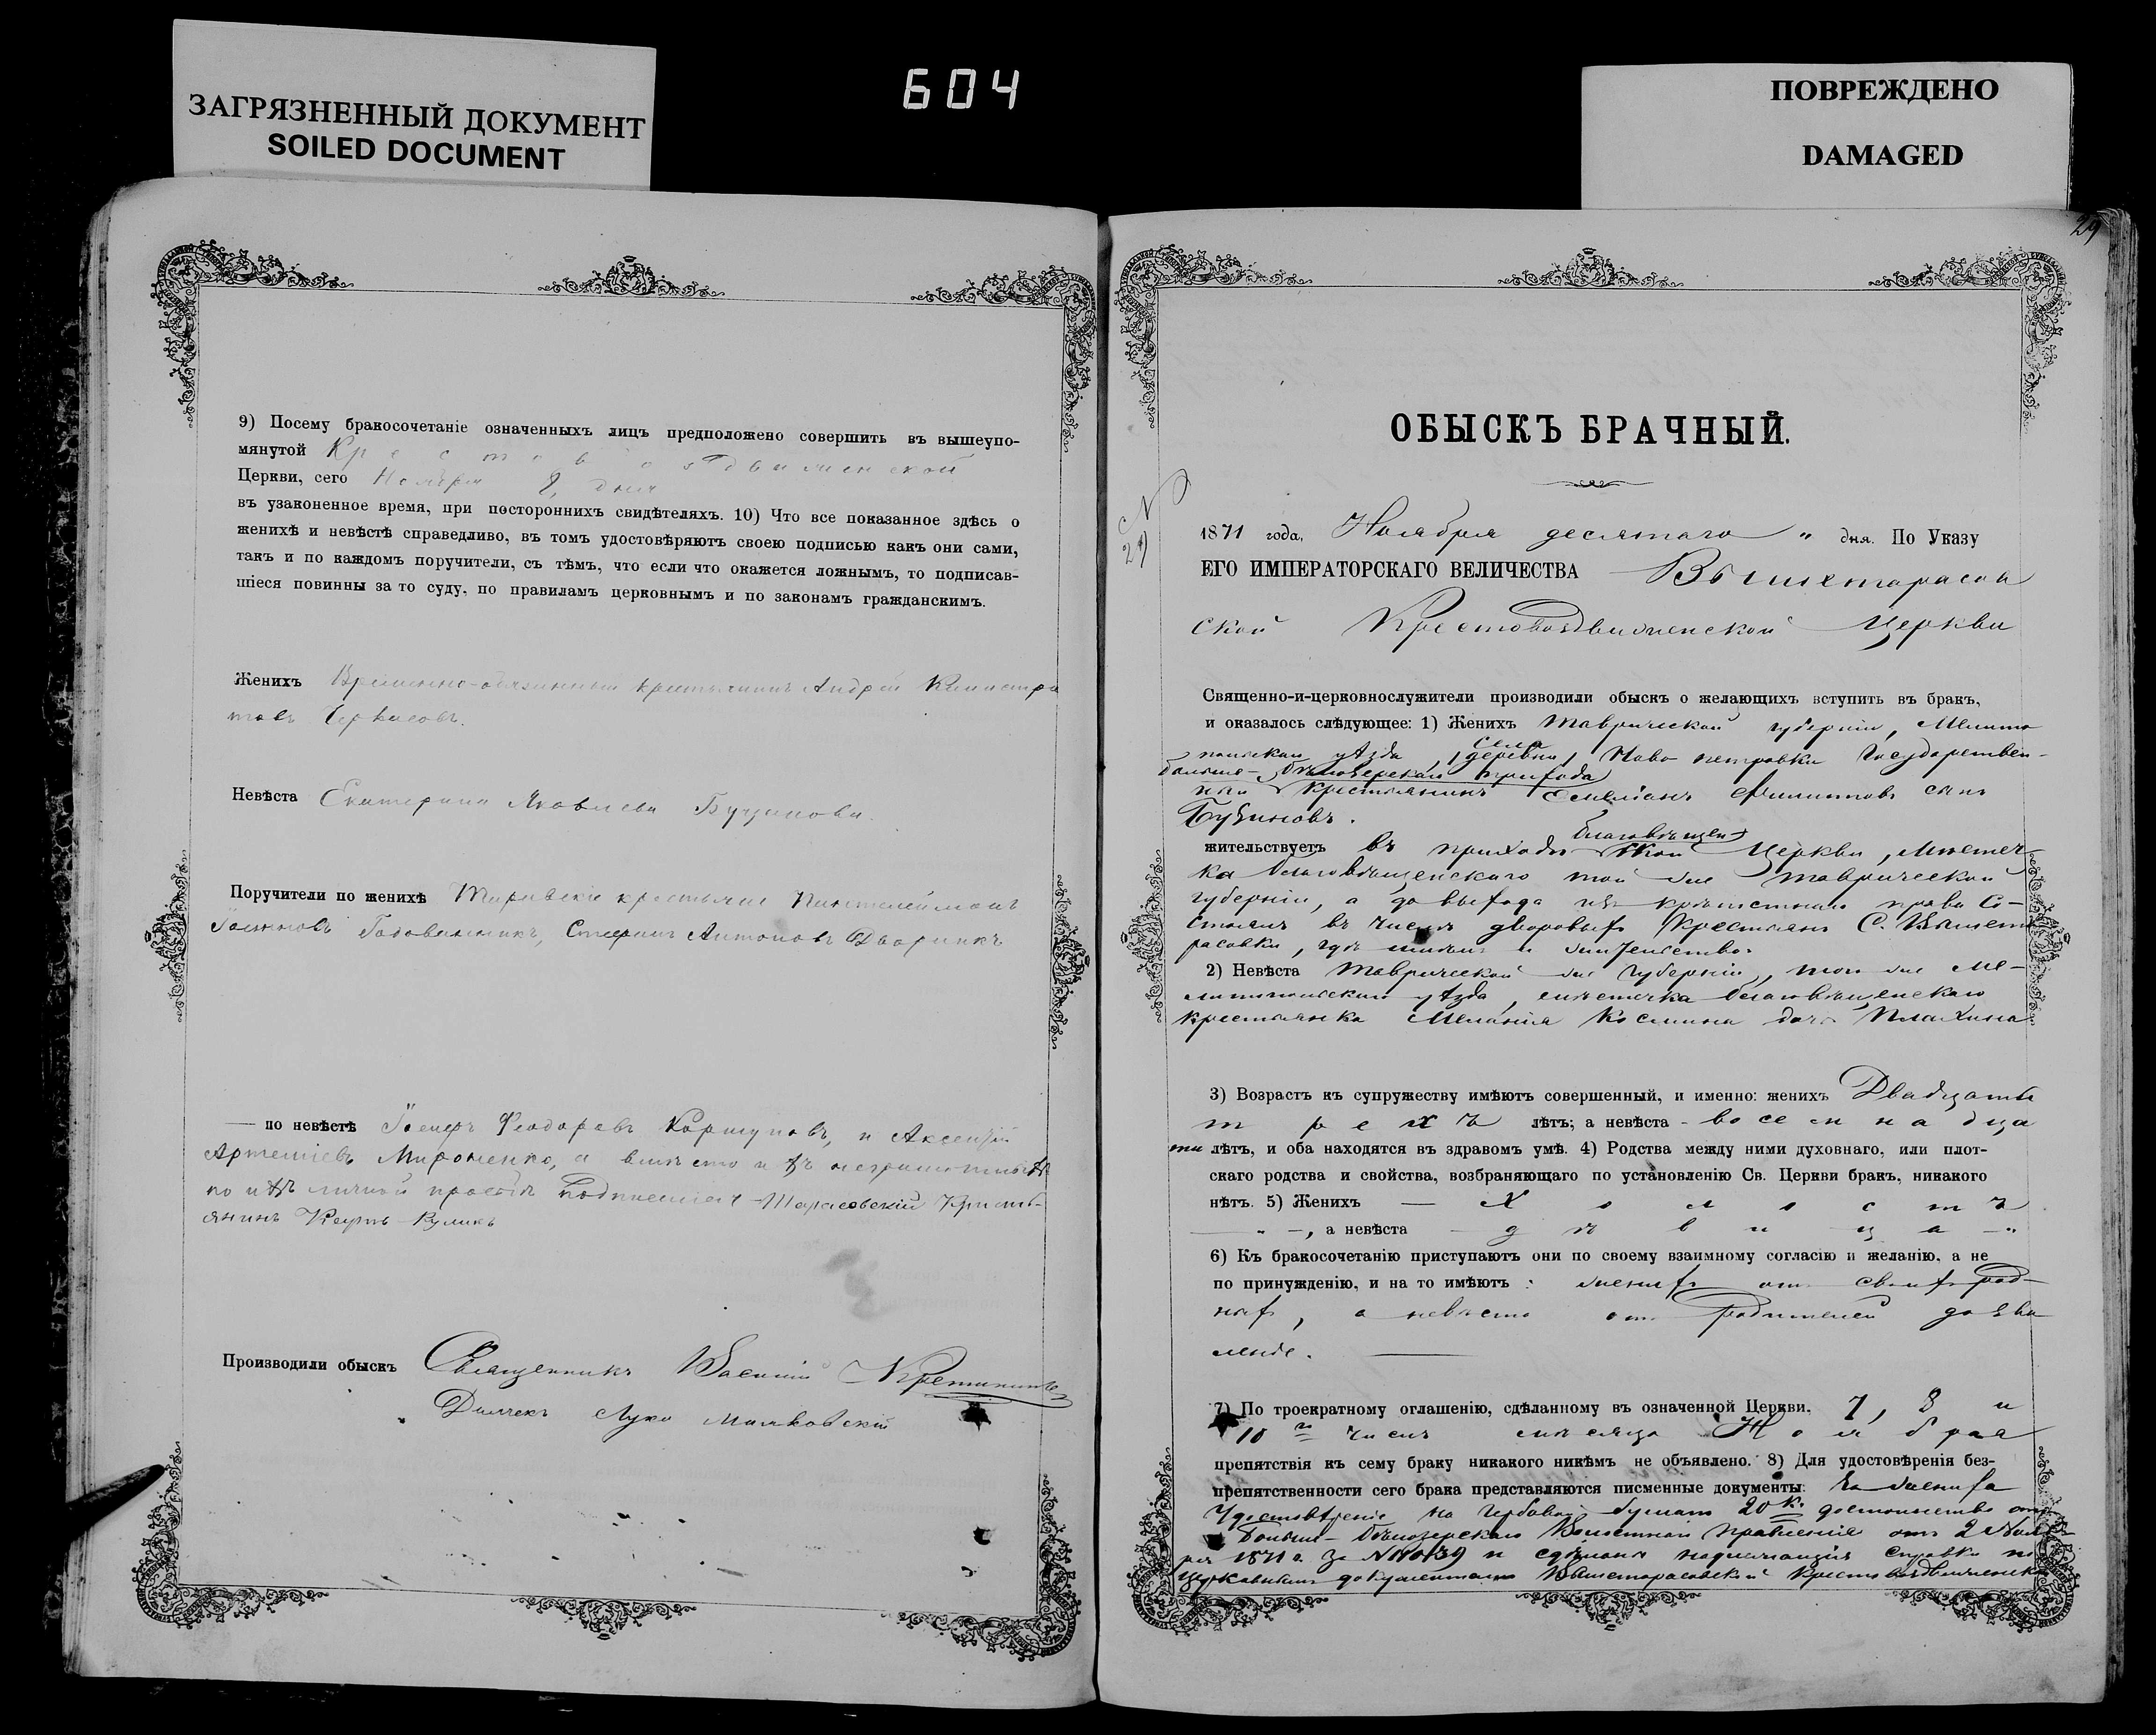 ЗАГРЯЗНЕННЫЙ ДОКУМЕНТ
SOILED DOCUMENT
604
ПОВРЕЖДЕНО
DAMAGED
9) Посему бракосочетаніе означенныхъ лицъ предположено совершить въ вышеупо-
мянутой Крестовоздвиженской
Церкви, сего Ноября 8, дня
въ узаконенное время, при постороннихъ свидѣтеляхъ. 10) Что все показанное здѣсь о
женихѣ и невѣстѣ справедливо, въ томъ удостовѣряютъ своею подписью какъ они сами,
такъ и по каждомъ поручители, съ тѣмъ, что если что окажется ложнымъ, то подписав-
шіеся повинны за то суду, по правиламъ церковнымъ и по законамъ гражданскимъ.
Женихъ Временно-обязанный крестьянинъ Андрей Калистра
товъ
Невѣста Екатерина Яковлева
Поручители по женихѣ крестьяне
Стефанъ Антоновъ Дворникъ
— по невѣстѣ Феодоровъ Коршуновъ, и Аксентій
Артеміевъ Мироненко, а вмѣсто ихъ неграмотныхъ
по ихъ личной прозьбѣ подписался Тарасовскій Кресть-
янинъ Карпъ Куликъ
Производили обыскъ Священникъ Василій
Дьячекъ Лука
29
ОБЫСКЪ БРАЧНЫЙ.
N
29
1871 года, Ноября десятаго " дня. По Указу
ЕГО ИМПЕРАТОРСКАГО ВЕЛИЧЕСТВА Вышетарасов
ской Крестовоздвиженской Церкви
Священно-и-церковнослужители производили обыскъ о желающихъ вступить въ бракъ,
и оказалось слѣдующее: 1) Женихъ Таврической губерніи, Мелито
польскаго уѣзда, (деревни) села Ново петровки Государствен-
больше-бѣлозерскаго прихода
ный крестьянинъ Емеліанъ Филипповъ сынъ
Бузиновъ.
жительствуетъ въ приходѣ благовѣщен
ской Церкви, мѣстеч
ка благовѣщенскаго той же таврической
губерніи, а до выхода изъ крѣпостнаго права со-
стоялъ въ числѣ дворовыхъ крестьянъ С. Вышета
расовки, гдѣ имѣлъ и жительство.
2) Невѣста таврической же губерніи, того же ме-
литопольскаго уѣзда, мѣстечка благовѣщенскаго
крестьянка Меланія Космина дочь Плахина
3) Возрастъ къ супружеству имѣютъ совершенный, и именно: женихъ Двадцати
трехъ лѣтъ; а невѣста - восемнадца
ти лѣтъ, и оба находятся въ здравомъ умѣ. 4) Родства между ними духовнаго, или плот-
скаго родства и свойства, возбраняющаго по установленію Св. Церкви бракъ, никакого
нѣтъ. 5) Женихъ — Холостъ
— " —, а невѣста — дѣвица — "
6) Къ бракосочетанію приступаютъ они по своему взаимному согласію и желанію, а не
по принужденію, и на то имѣютъ : женихъ отъ своихъ род-
ныхъ, а невѣста отъ родителей дозво
леніе.
7) По троекратному оглашенію, сдѣланному въ означенной Церкви, 7, 8 и
10го числъ мѣсяца Ноября
препятствія къ сему браку никакого никѣмъ не объявлено. 8) Для удостовѣренія без-
препятственности сего брака представляются писменные документы: На жениха
Удостовѣреніе на гербовой бумагѣ 20 к. достоинства отъ
Больше-Бѣлозерскаго Волостнаго правленія отъ 2 Нояб-
ря 1871 г. за N и сдѣлана надлежащая справка по
церковнымъ документамъ Вышетарасовской Крестовоздвиженск